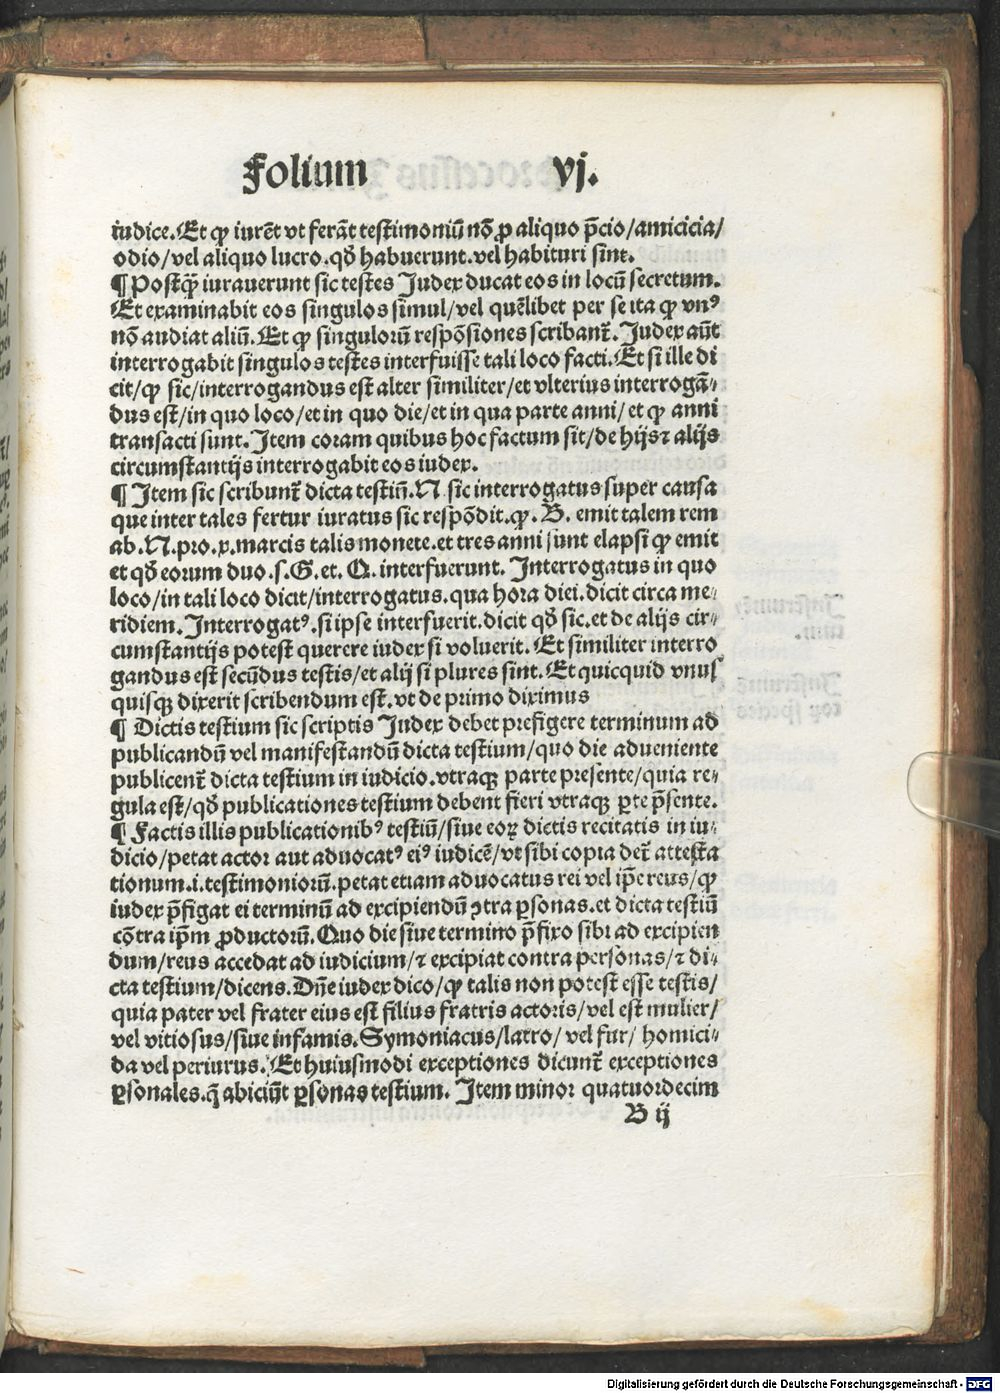 Folium vj.
iudice. Et ꝙ iurēt vt ferāt testimoniū nō ꝓ aliquo p̄cio/amicicia/
odio/vel aliquo lucro. qđ habuerunt. vel habituri sint.
¶ Postꝙ̄ iurauerunt sic testes Judex ducat eos in locū secretum.
Et examinabit eos singulos simul/vel quēlibet per se ita ꝙ vnꝰ
nō audiat aliū. Et ꝙ singulorū respōsiones scribant̄. Judex aūt
interrogabit singulos testes interfuisse tali loco facti. Et si ille di
cit/ꝙ sic/interrogandus est alter similiter/et vlterius interrogā⸗
dus est/in quo loco/et in quo die/et in qua parte anni/et ꝙ anni
transacti sunt. Item coram quibus hoc factum sit/de hijs ⁊ alijs
circumstantijs interrogabit eos iudex.
¶ Item sic scribunt̄ dicta testiū. N sic interrogatus super causa
que inter tales fertur iuratus sic respōdit. ꝙ. B. emit talem rem
ab. N. pro. x. marcis talis monete. et tres anni sunt elapsi ꝙ emit
et qđ eorum duo. s. G. et. Q. interfuerunt. Interrogatus in quo
loco/in tali loco dicit/interrogatus. qua hora diei. dicit circa me⸗
ridiem. Interrogatꝰ. si ipse interfuerit. dicit qđ sic. et de alijs cir⸗
cumstantijs potest querere iudex si voluerit. Et similiter interro
gandus est secūdus testis/et alij si plures sint. Et quicquid vnus
quisqꝫ dixerit scribendum est. vt de primo diximus
¶ Dictis testium sic scriptis Judex debet prefigere terminum ad
publicandū vel manifestandū dicta testium/quo die adueniente
publicent̄ dicta testium in iudicio. vtraqꝫ parte presente/quia re⸗
gula est/qđ publicationes testium debent fieri vtraqꝫ ꝑte p̄sente.
¶ Factis illis publicationibꝰ testiū/siue eoꝝ dictis recitatis in iu⸗
dicio/petat actor aut aduocatꝰ eiꝰ iudicē/vt sibi copia det̄ attesta
tionum. i. testimoniorū. petat etiam aduocatus rei vel ip̄e reus/ꝙ
iudex p̄figat ei terminū ad excipiendū ꝯtra ꝑsonas. et dicta testiū
cōtra ip̄m ꝓductorū. Quo die siue termino p̄fixo sibi ad excipien
dum/reus accedat ad iudicium/⁊ excipiat contra personas/⁊ di⸗
cta testium/dicens. Dn̄e iudex dico/ꝙ talis non potest esse testis/
quia pater vel frater eius est filius fratris actoris/vel est mulier/
vel vitiosus/siue infamis. Symoniacus/latro/ vel fur/ homici⸗
da vel periurus. Et huiusmodi exceptiones dicunt̄ exceptiones
ꝑsonales. q̄ abiciūt ꝑsonas testium. Item minor quatuordecim
B ij
Digitalisierung gefördert durch die Deutsche Forschungsgemeinschaft - DFG